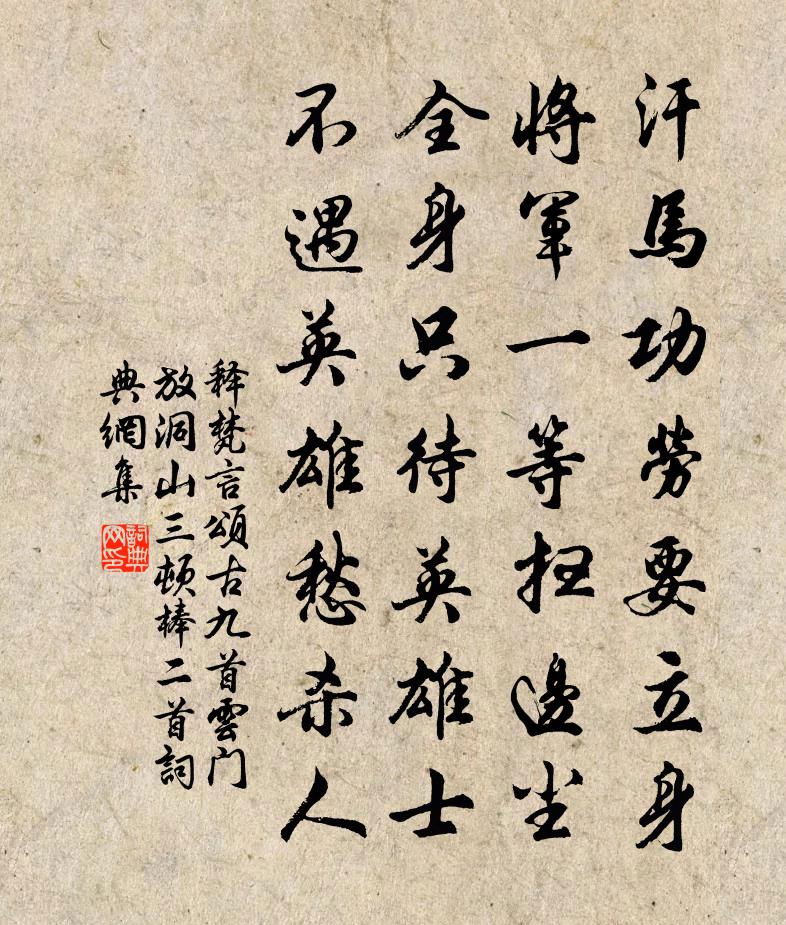 汗馬功勞要立身
將軍一等扫邊尘
全身只待英雄士
不遇英雄愁杀人
释梵言頌古九首雲门
放洞山三顿棒二首詞
典網集
詞典
网印